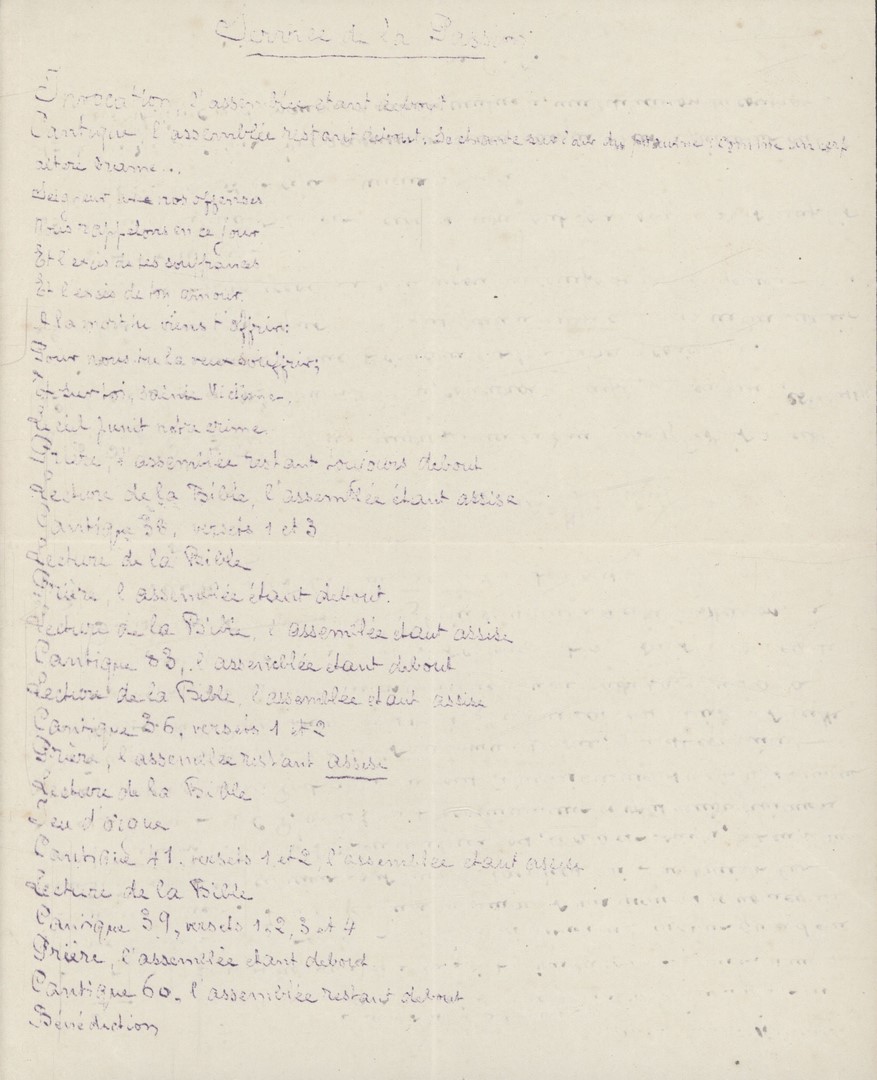 Service de la Passion
Invocation, l'assemblée étant debout
Cantique, l'assemblée restant debout. Se chante sur l'air du psaume : Comme un cerf
altéré brame...
Seigneur, nos offenses
rappelons en ce jour
Et l'excès de tes souffrances
Et l'excès de ton amour.
A la mort tu viens t'offrir:
Pour nous tu la veux souffrir;
Et sur toi, sainte Victime,
Le ciel punit notre crime.
Prière, l'assemblée restant toujours debout
Lecture de la Bible, l'assemblée étant assise
Cantique versets 1 et 3
Lecture de la Bible
Prière, l'assemblée étant debout.
Lecture de la Bible, l'assemblée étant assise
Cantique l'assemblée étant debout
Lecture de la Bible, l'assemblée étant assise
Cantique 36, versets 1 et 2
Prière, l'assemblée restant assise
Lecture de la Bible
Jeu d'orgue
Cantique 41. versets 1 et 2, l'assemblée étant assise
Lecture de la Bible
Cantique 39, versets 1, 2, 3 et 4
Prière, l'assemblée étant debout
Cantique 60, l'assemblée restant debout
Bénédiction